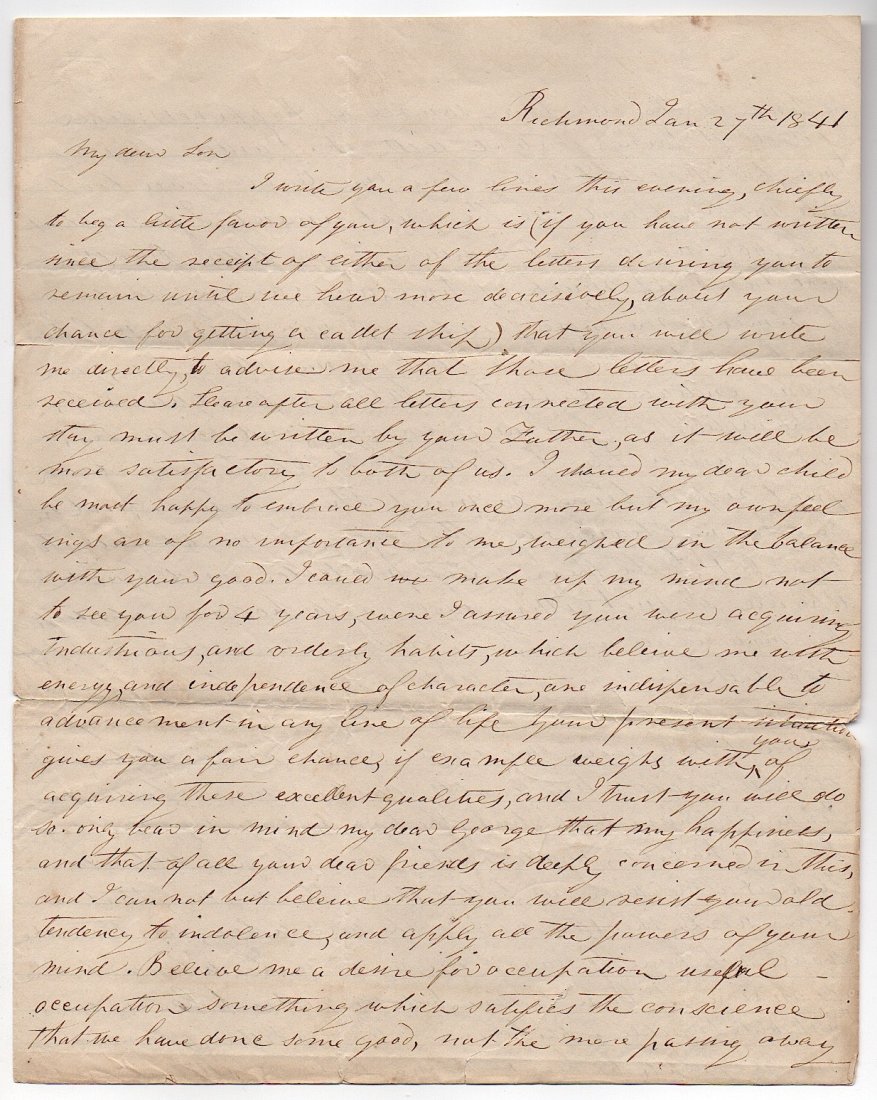 Richmond Jan 27th 1841
My dear Son
I write you a few lines this evening, chiefly
to beg a little favor of you, which is (if you have not written
since the receipt of either of the letters desiring you to
remain until we hear more decisively, about your
chance for getting a cadet ship) that you will write
me directly, to advise me that those letters have been
received. Hereafter all letters connected with your
stay must be written by your Father, as it will be
more satisfactory to both of us. I should my dear child
be most happy to embrace you once more but my own feel
ings are of no importance to me, weighed in the balance
with your good. I could make up my mind not
to see you for 4 years, were I assured you were acquiring
Industrious, and orderly habits, which beleive me with
energy, and independence of character, are indispensable to
advancement in any line of life your present situation
gives you a fair chance, if example weighs with you, of
acquiring these excellent qualities, and I trust you will do
so. only bear in mind my dear George that my happiness,
and that of all your dear friends is deeply concerned in this,
and I can not but beleive that you will resist your old
tendency to indolence, and apply all the powers of your
mind. Beleive me a desire for occupation useful
occupation something which satifies the conscience
that we have done some good, not the mere passing away